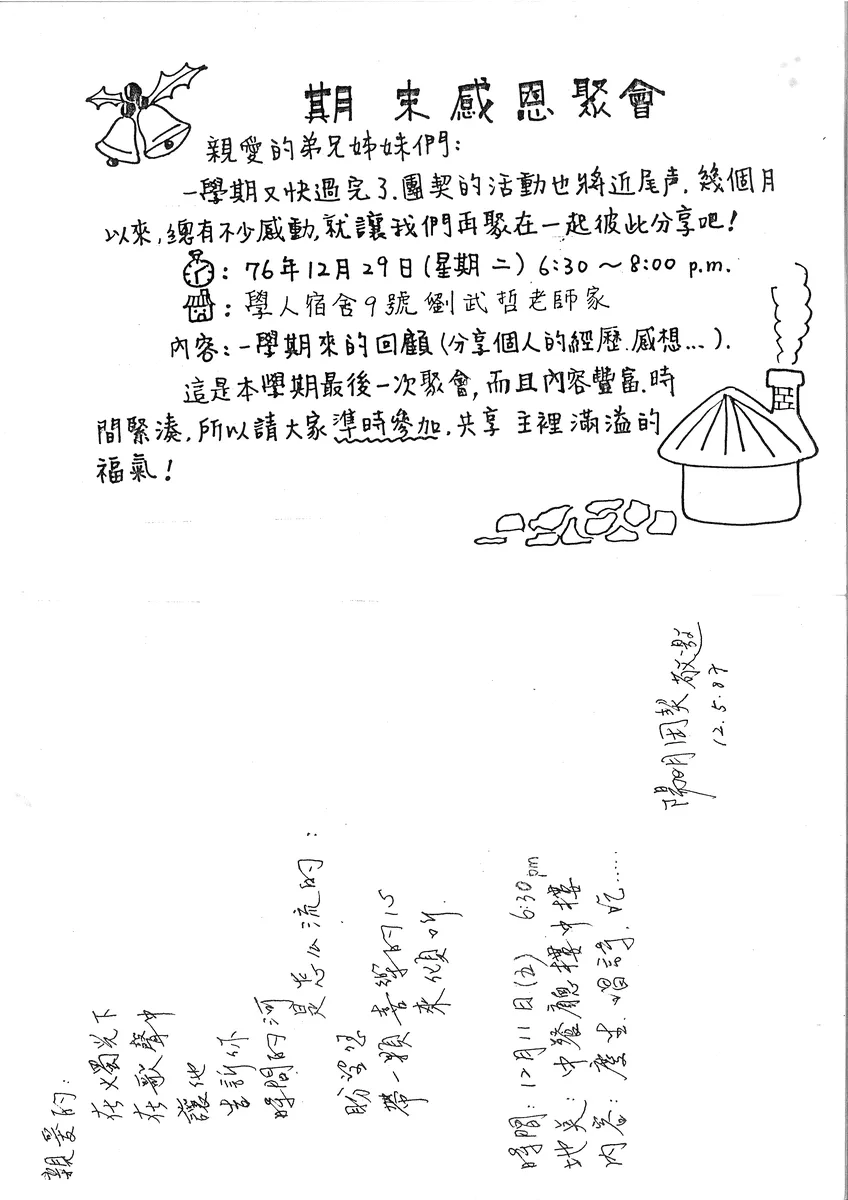 期末感恩聚會
親愛的弟兄姊妹們:
一學期又快過完了.團契的活動也將近尾声.幾個月
以來,總有不少感動,就讓我們再聚在一起彼此分享吧!
: 76年12月29日(星期二) 6:30~8:00 p.m.
: 學人宿舍9號劉武哲老師家
內容:一學期來的回顧(分享個人的經歷.感想...).
這是本學期最後一次聚會,而且內容豐富.時
間緊湊,所以請大家準時參加.共享主裡滿溢的
福氣!
親愛的:
在燭光下
在歌聲中
讓他
告訴你
時間的河
是怎么流的:
盼望您
帶一顆喜樂的心
來傾听.
時間:12月11日(五) 6:30pm
地点:中餐廳樓中樓
內容:慶生.唱詩.吃......
陽明团契敬邀
12.5.87